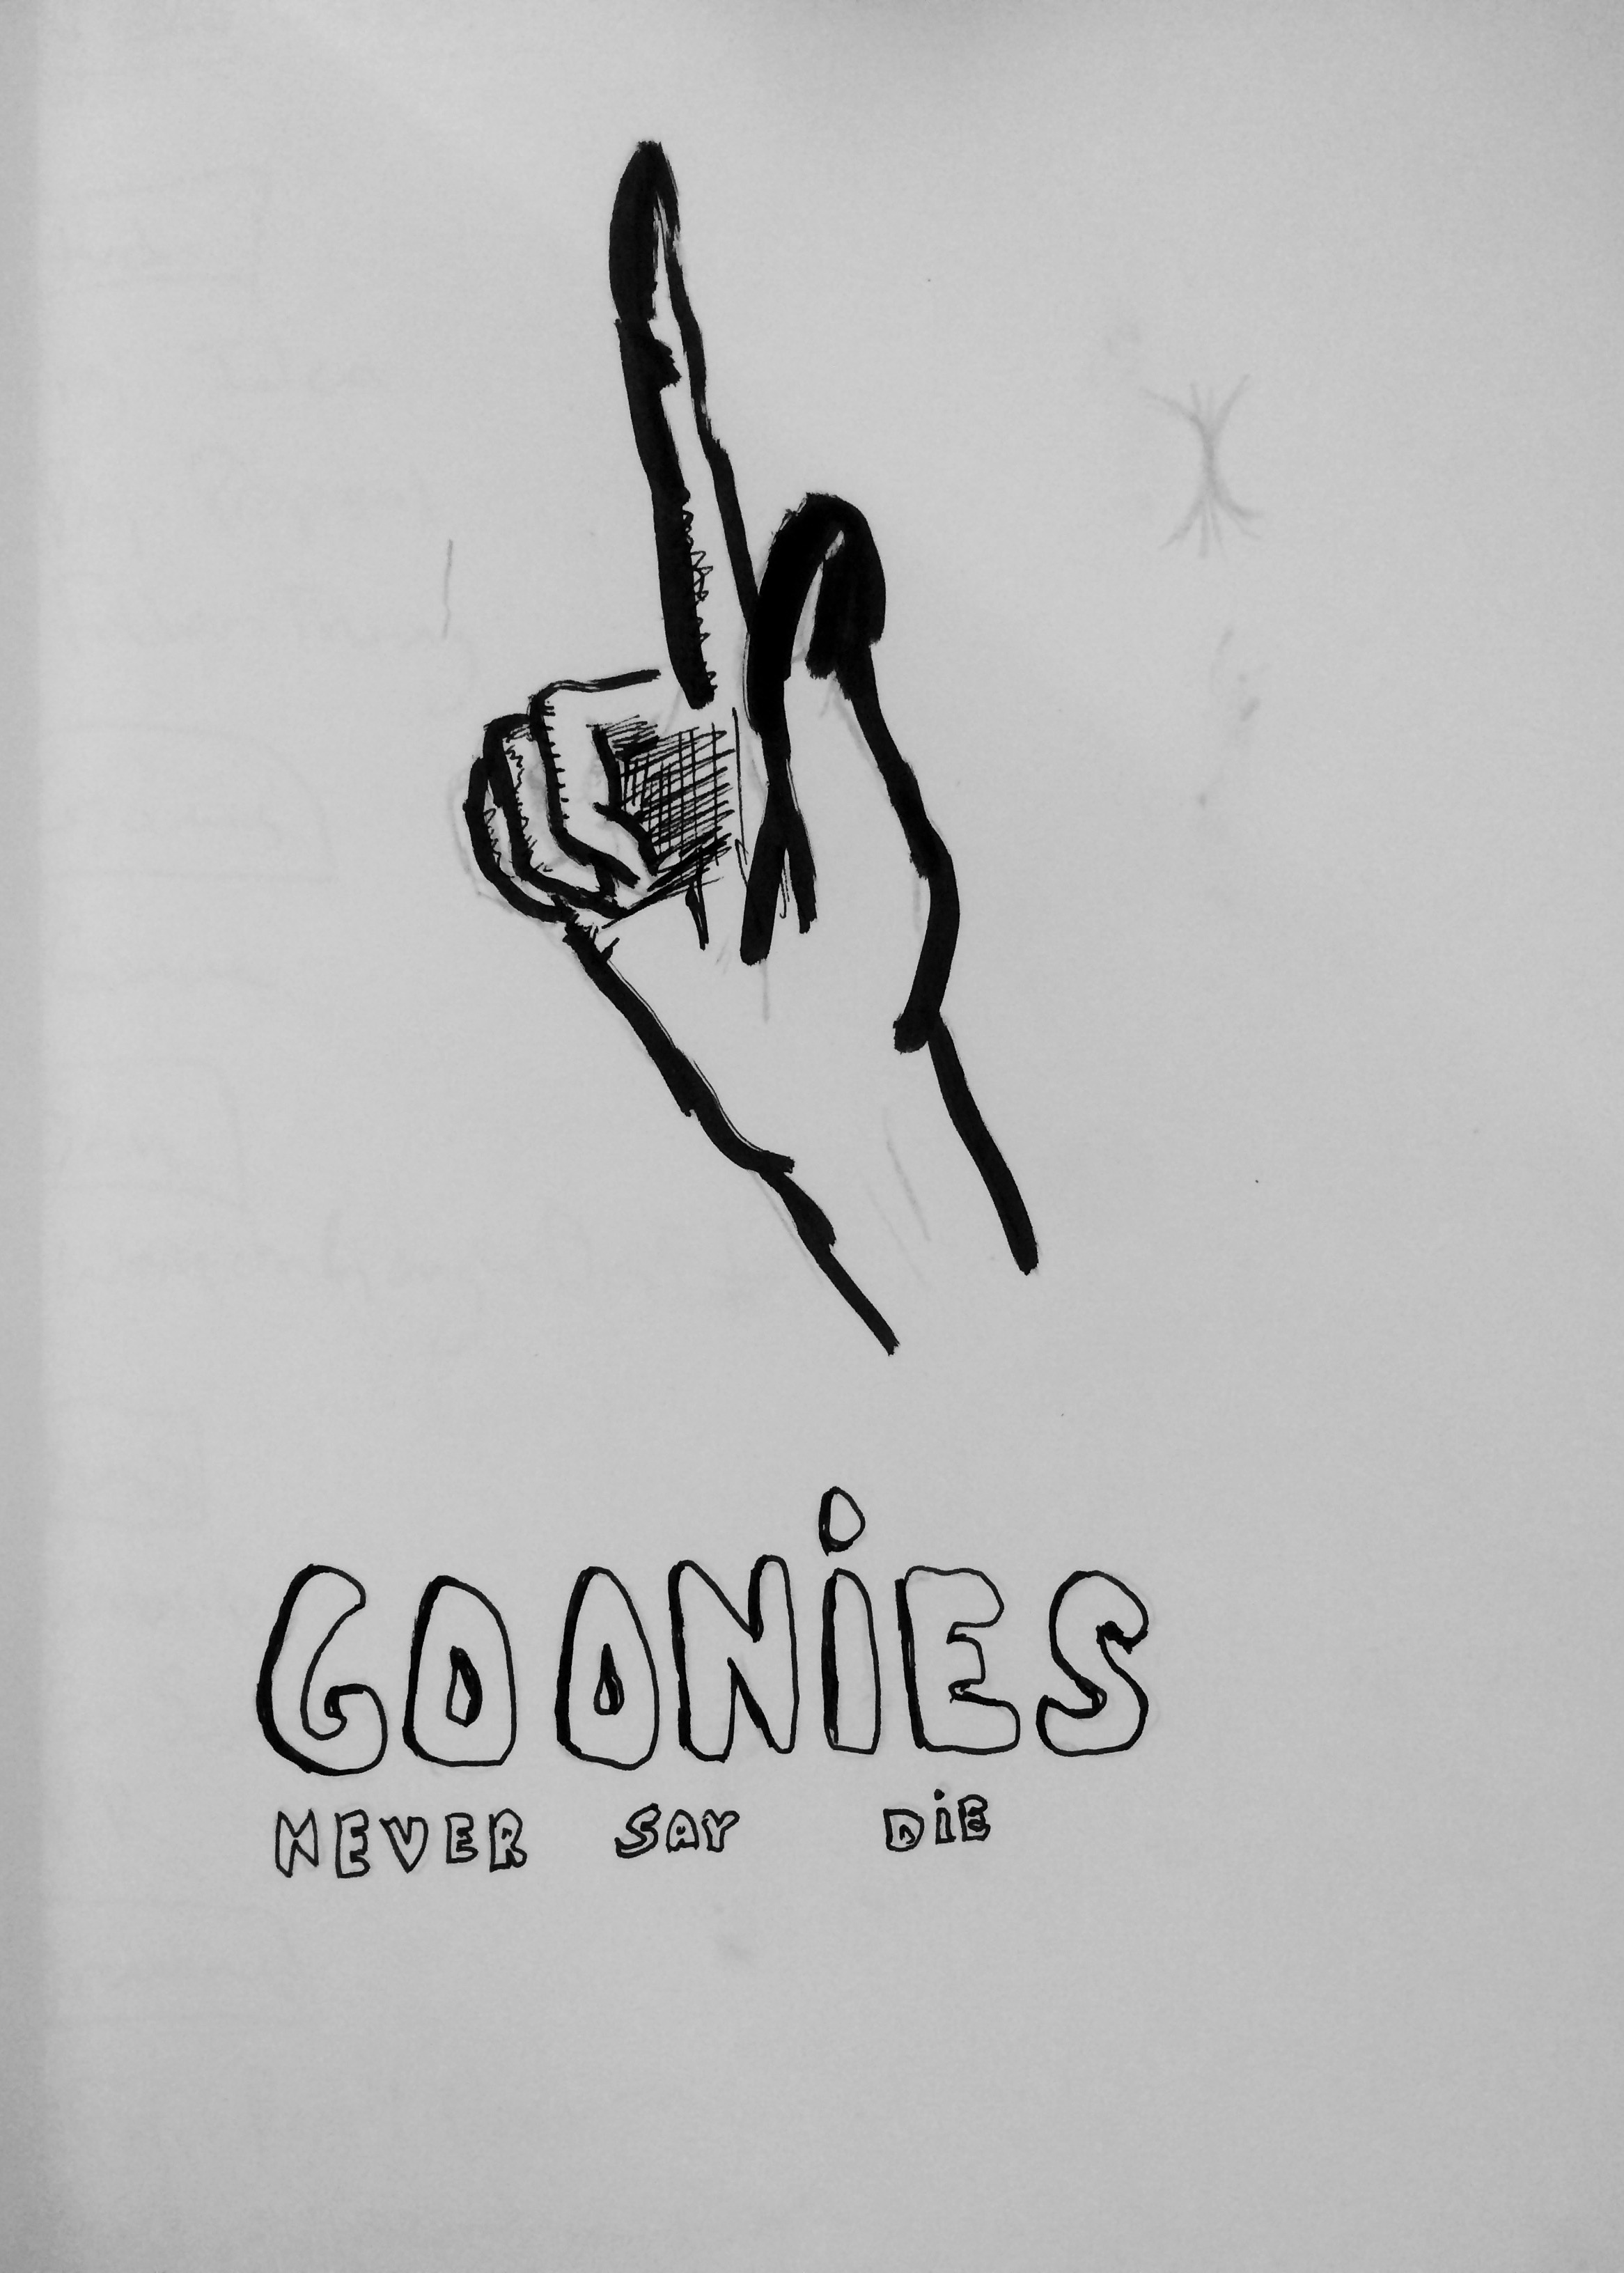 GOONiES
NEVER SAY DiE